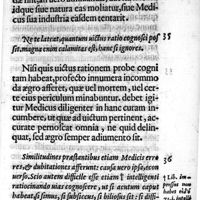 idque siue natura eas moliatur, siue Medi-
cus sua industria easdem tentarit.
Ne te lateat, quantum uictus ratio cognosci pos 35
sit. magna enim calamitas est, hanc si ignores.
Nisi quis uictus rationem probe cognitam
tam habeat, profecto innumera incommo-
da ægro afferet, quæ uel mortem, uel cer-
te eius periculum minabuntur. debet igit
Medicus diligenter in hanc curam in-
cumbere, ut quæ ad uictum pertinent, ac-
curate pernoscat omnia, ne quid delin-
quat, sed ægro semper adiumento sit.
Similitudines præstantibus etiam Medicis erro 36
res & dubitationes afferunt: causa uero ipsa, econ
uerso. Scio autem difficile esse etiam † intelligenti
ratiocinandi uias cognoscere, ut si acutum caput
habeat, si simus, si subsiccus, si biliosus sit: si diffi
† Lib. im